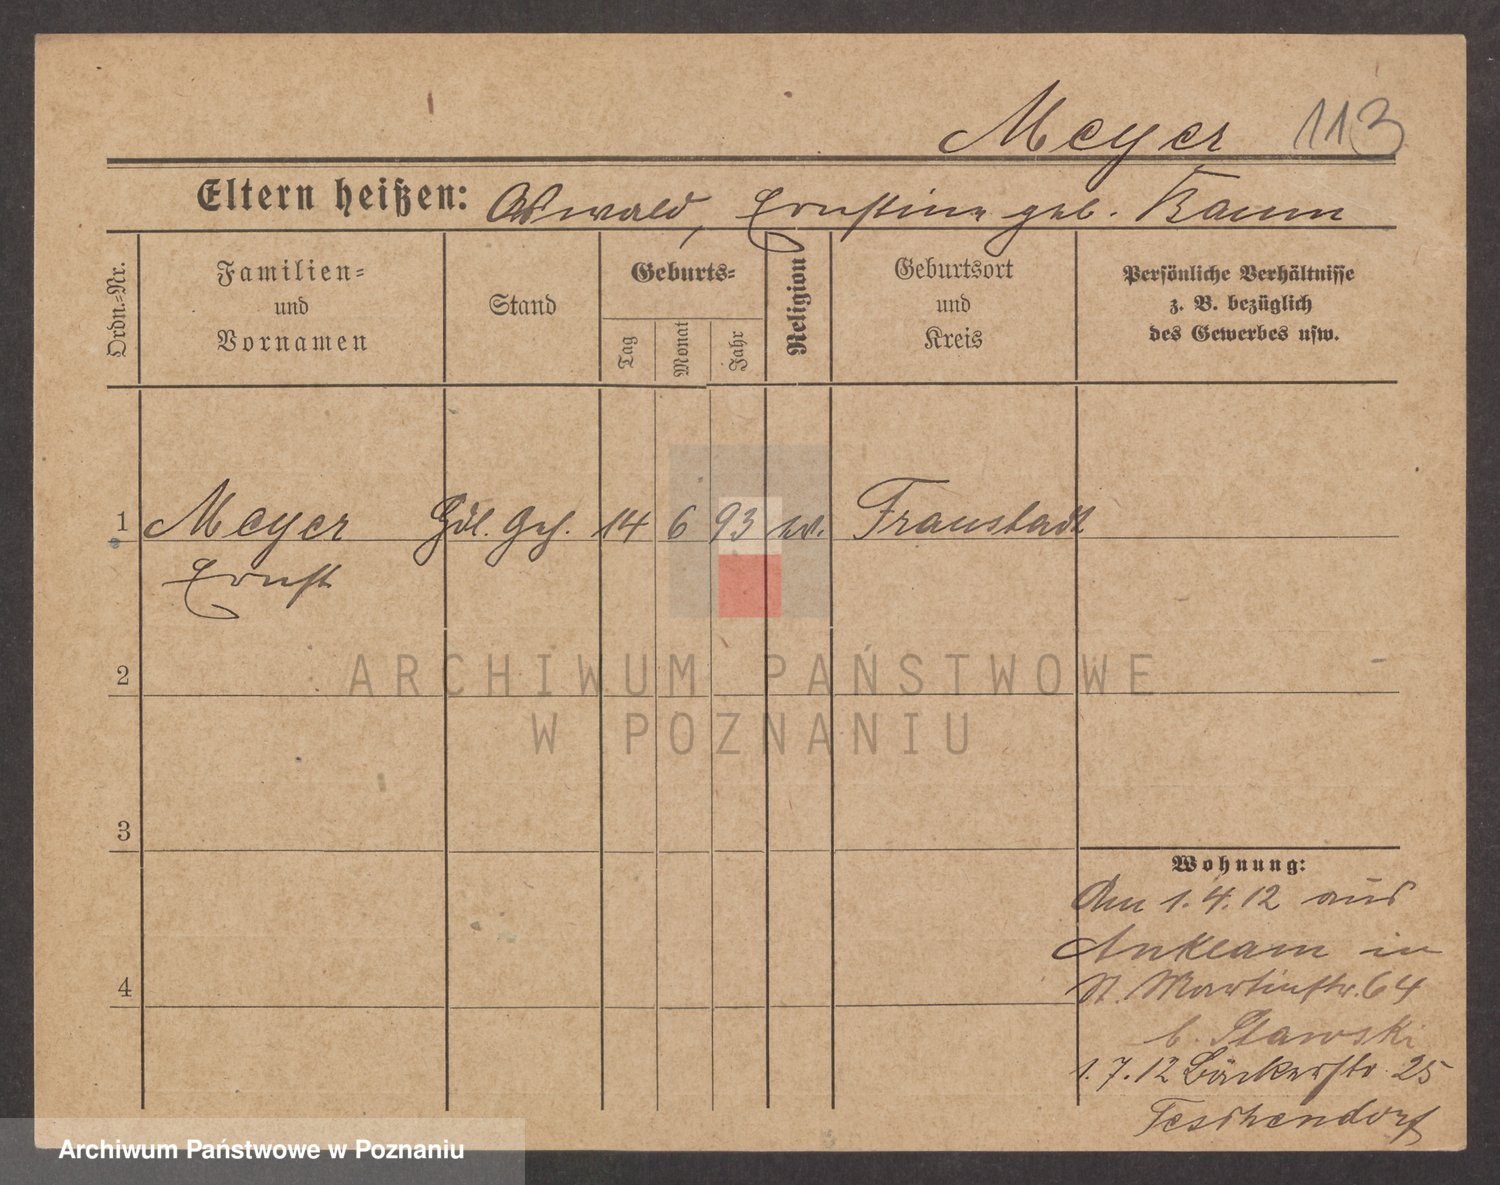 Meyer 113
Eltern heißen: Oswald, Ernstine geb. Baum
Ordn.=Nr.
Familien=
und
Vornamen
Stand
Geburts=
Tag
Monat
Jahr
Religion
Geburtsort
und
Kreis
Persönliche Verhältnisse
z. B. bezüglich
des Gewerbes usw.
1 Meyer Hdl. Geh. 14 6 93 ev. Fraustadt
Ernst
2
3
4
Wohnung:
Am 1.4.12 aus
Anklam in
St. Martinstr. 64
b. Stawski
1.7.12 Bäckerstr. 25
Teschendorf
ARCHIWUM PAŃSTWOWE
W POZNANIU
Archiwum Państwowe w Poznaniu